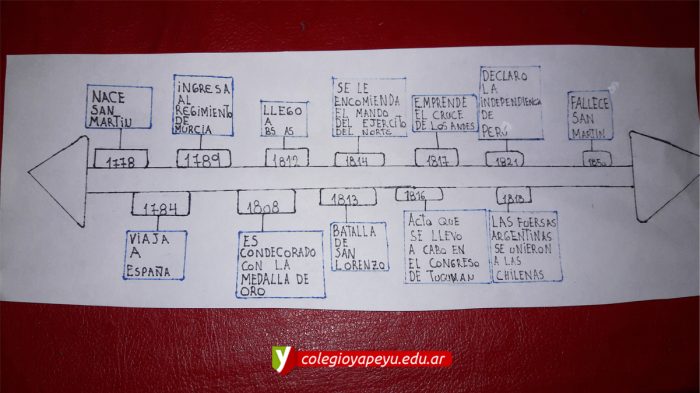 NACE
SAN
MARTIN
1778
INGRESA
AL
REGIMIENTO
DE
MURCIA
1789
LLEGO
A
BS AS
1812
SE LE
ENCOMIENDA
EL MANDO
DEL EJERCITO
DEL NORTE
1814
EMPRENDE
EL CRUCE
DE LOS ANDES
1817
DECLARO
LA
INDEPENDIENCIA
DE
PERÚ
1821
FALLECE
SAN
MARTIN
1850
1784
VIAJA
A
ESPAÑA
1808
ES
CONDECORADO
CON LA
MEDALLA DE
ORO
1813
BATALLA
DE
SAN
LORENZO
1816
ACTO QUE
SE LLEVO
A CABO EN
EL CONGRESO
DE TUCUMAN
1818
LAS FUERSAS
ARGENTINAS
SE UNIERON
A LAS
CHILENAS
y colegioyapeyu.edu.ar